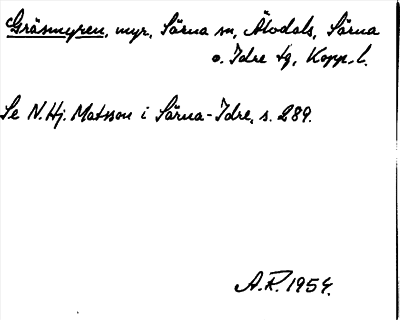 Gräsmyren, myr, Särna sn, Älvdals, Särna
o. Idre tg, Kopp. l.
Se N. Hj. Matsson i Särna-Idre, s. 289.
A.R. 1954.